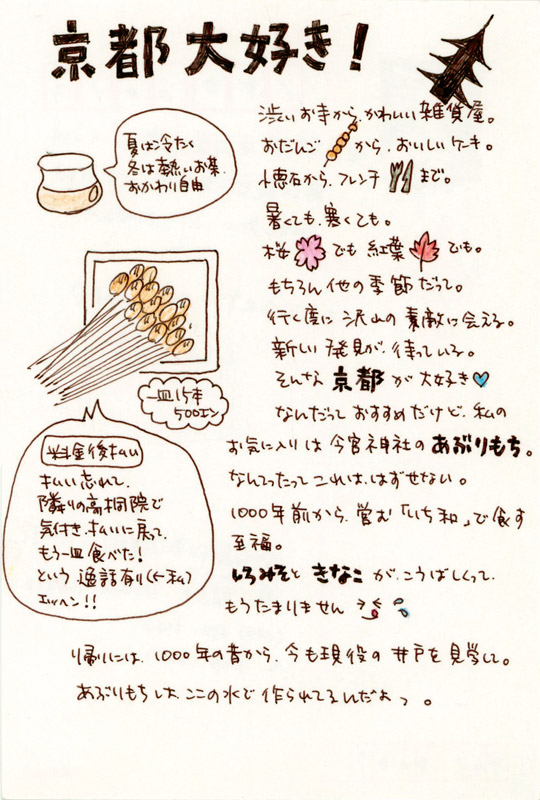 京都大好き!
渋いお寺から、かわいい雑貨屋。
おだんごから、おいしいケーキ。
懐石から、フレンチまで。
暑くても、寒くても。
桜でも紅葉でも。
もちろん他の季節だって。
行く度に沢山の素敵に会える。
新しい発見が、待っている。
そんな京都が大好き
なんだっておすすめだけど、私の
お気に入りは今宮神社のあぶりもち。
なんてったってこれは、はずせない。
1000年前から、営む「いち和」で食す
至福。
しろみそときなこが、こうばしくって、
もうたまりません
夏は冷たく
冬は熱いお茶、
おかわり自由
一皿15本
500エン
料金後払い
払い忘れて、
隣りの高桐院で
気付き、払いに戻って、
もう一皿食べた!
という逸話有り(←私)
エッヘン!!
帰りには、1000年の昔から、今も現役の井戸を見学して。
あぶりもちは、ここの水で作られてるんだよっ。